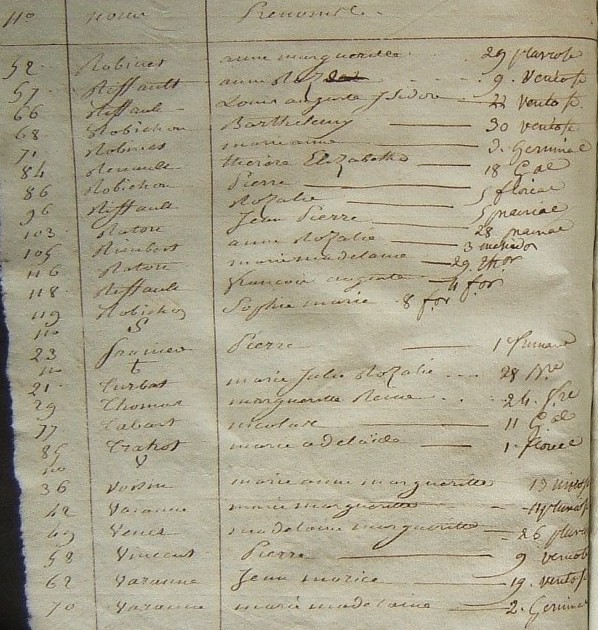 no nom Prenoms
52 Robinet anne margueritte 29 pluviose
57 Riffault anne Roz 9 ventose
66 Riffault Louis auguste Isidore 22 ventose
68 Robichon Barthelemy 30 ventose
71 Robinet marianne 3 Germinal
84 Renault therese Elizabeth 18 Gal
86 Robichon Pierre 5 floreal
96 Riffault Rozalie 5 prairial
103 Raton Jean Pierre 28 prairial
105 Rimbert anne Rozalie 3 messidor
116 Raton marie madelaine 29
118 Riffault francois auguste 4 f.or
119 Robichon Sophie marie 8 f.or
no S
23 Pierre 1er frimaire
no t
21 Turbat marie Julie Rozalie 28 bre
29 Thomas margueritte Reine 24 fre
77 Tabart nicolase 11 Gal
85 Trahot marie adelaide 1 floreal
no V
36 marie anne margueritte 13 ventose
42 Varanne marie margueritte pluviose
49 madelaine margueritte 26 pluviose
58 Vincent Pierre 9 ventose
62 Varanne Jean morice 19 ventose
70 Varanne marie madelaine 2 Germinal